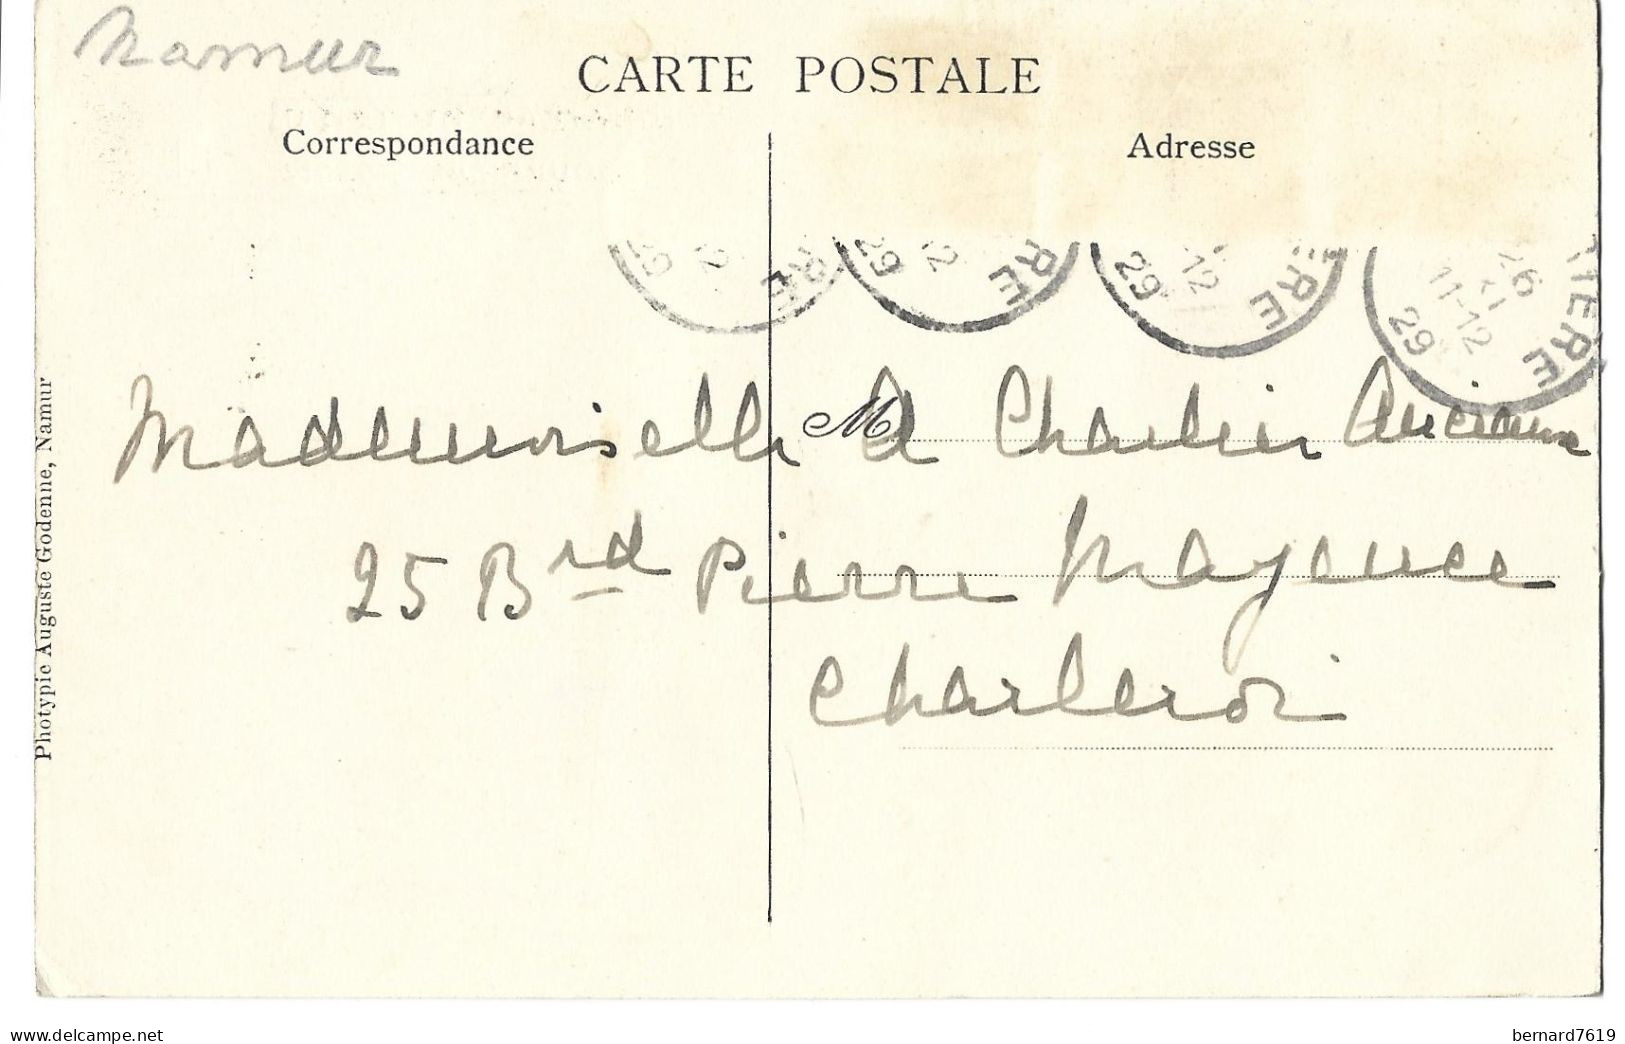 Namur
CARTE POSTALE
Correspondance
Adresse
RE 29
RE 29
12 ERE 29
26 XI 11-12 TIERE 29
Mademoiselle M A Charlier Anciaux
25 Brd Pierre Mayence
Charleroi
Photypie Auguste Godenne, Namur
delcampe.net
bernard7619